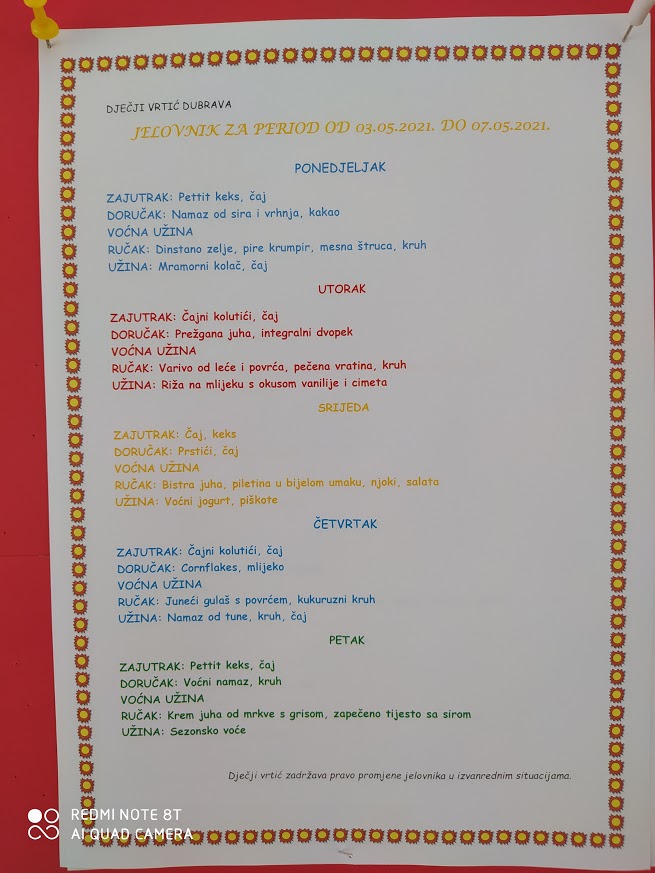 DJEČJI VRTIĆ DUBRAVA
JELOVNIK ZA PERIOD OD 03.05.2021. DO 07.05.2021.
PONEDJELJAK
ZAJUTRAK: Pettit keks, čaj
DORUČAK: Namaz od sira i vrhnja, kakao
VOĆNA UŽINA
RUČAK: Dinstano zelje, pire krumpir, mesna štruca, kruh
UŽINA: Mramorni kolač, čaj
UTORAK
ZAJUTRAK: Čajni kolutići, čaj
DORUČAK: Prežgana juha, integralni dvopek
VOĆNA UŽINA
RUČAK: Varivo od leće i povrća, pečena vratina, kruh
UŽINA: Riža na mlijeku s okusom vanilije i cimeta
SRIJEDA
ZAJUTRAK: Čaj, keks
DORUČAK: Prstići, čaj
VOĆNA UŽINA
RUČAK: Bistra juha, piletina u bijelom umaku, njoki, salata
UŽINA: Voćni jogurt, piškote
ČETVRTAK
ZAJUTRAK: Čajni kolutići, čaj
DORUČAK: Cornflakes, mlijeko
VOĆNA UŽINA
RUČAK: Juneći gulaš s povrćem, kukuruzni kruh
UŽINA: Namaz od tune, kruh, čaj
PETAK
ZAJUTRAK: Pettit keks, čaj
DORUČAK: Voćni namaz, kruh
VOĆNA UŽINA
RUČAK: Krem juha od mrkve s grisom, zapečeno tijesto sa sirom
UŽINA: Sezonsko voće
Dječji vrtić zadržava pravo promjene jelovnika u izvanrednim situacijama.
REDMI NOTE 8T
AI QUAD CAMERA